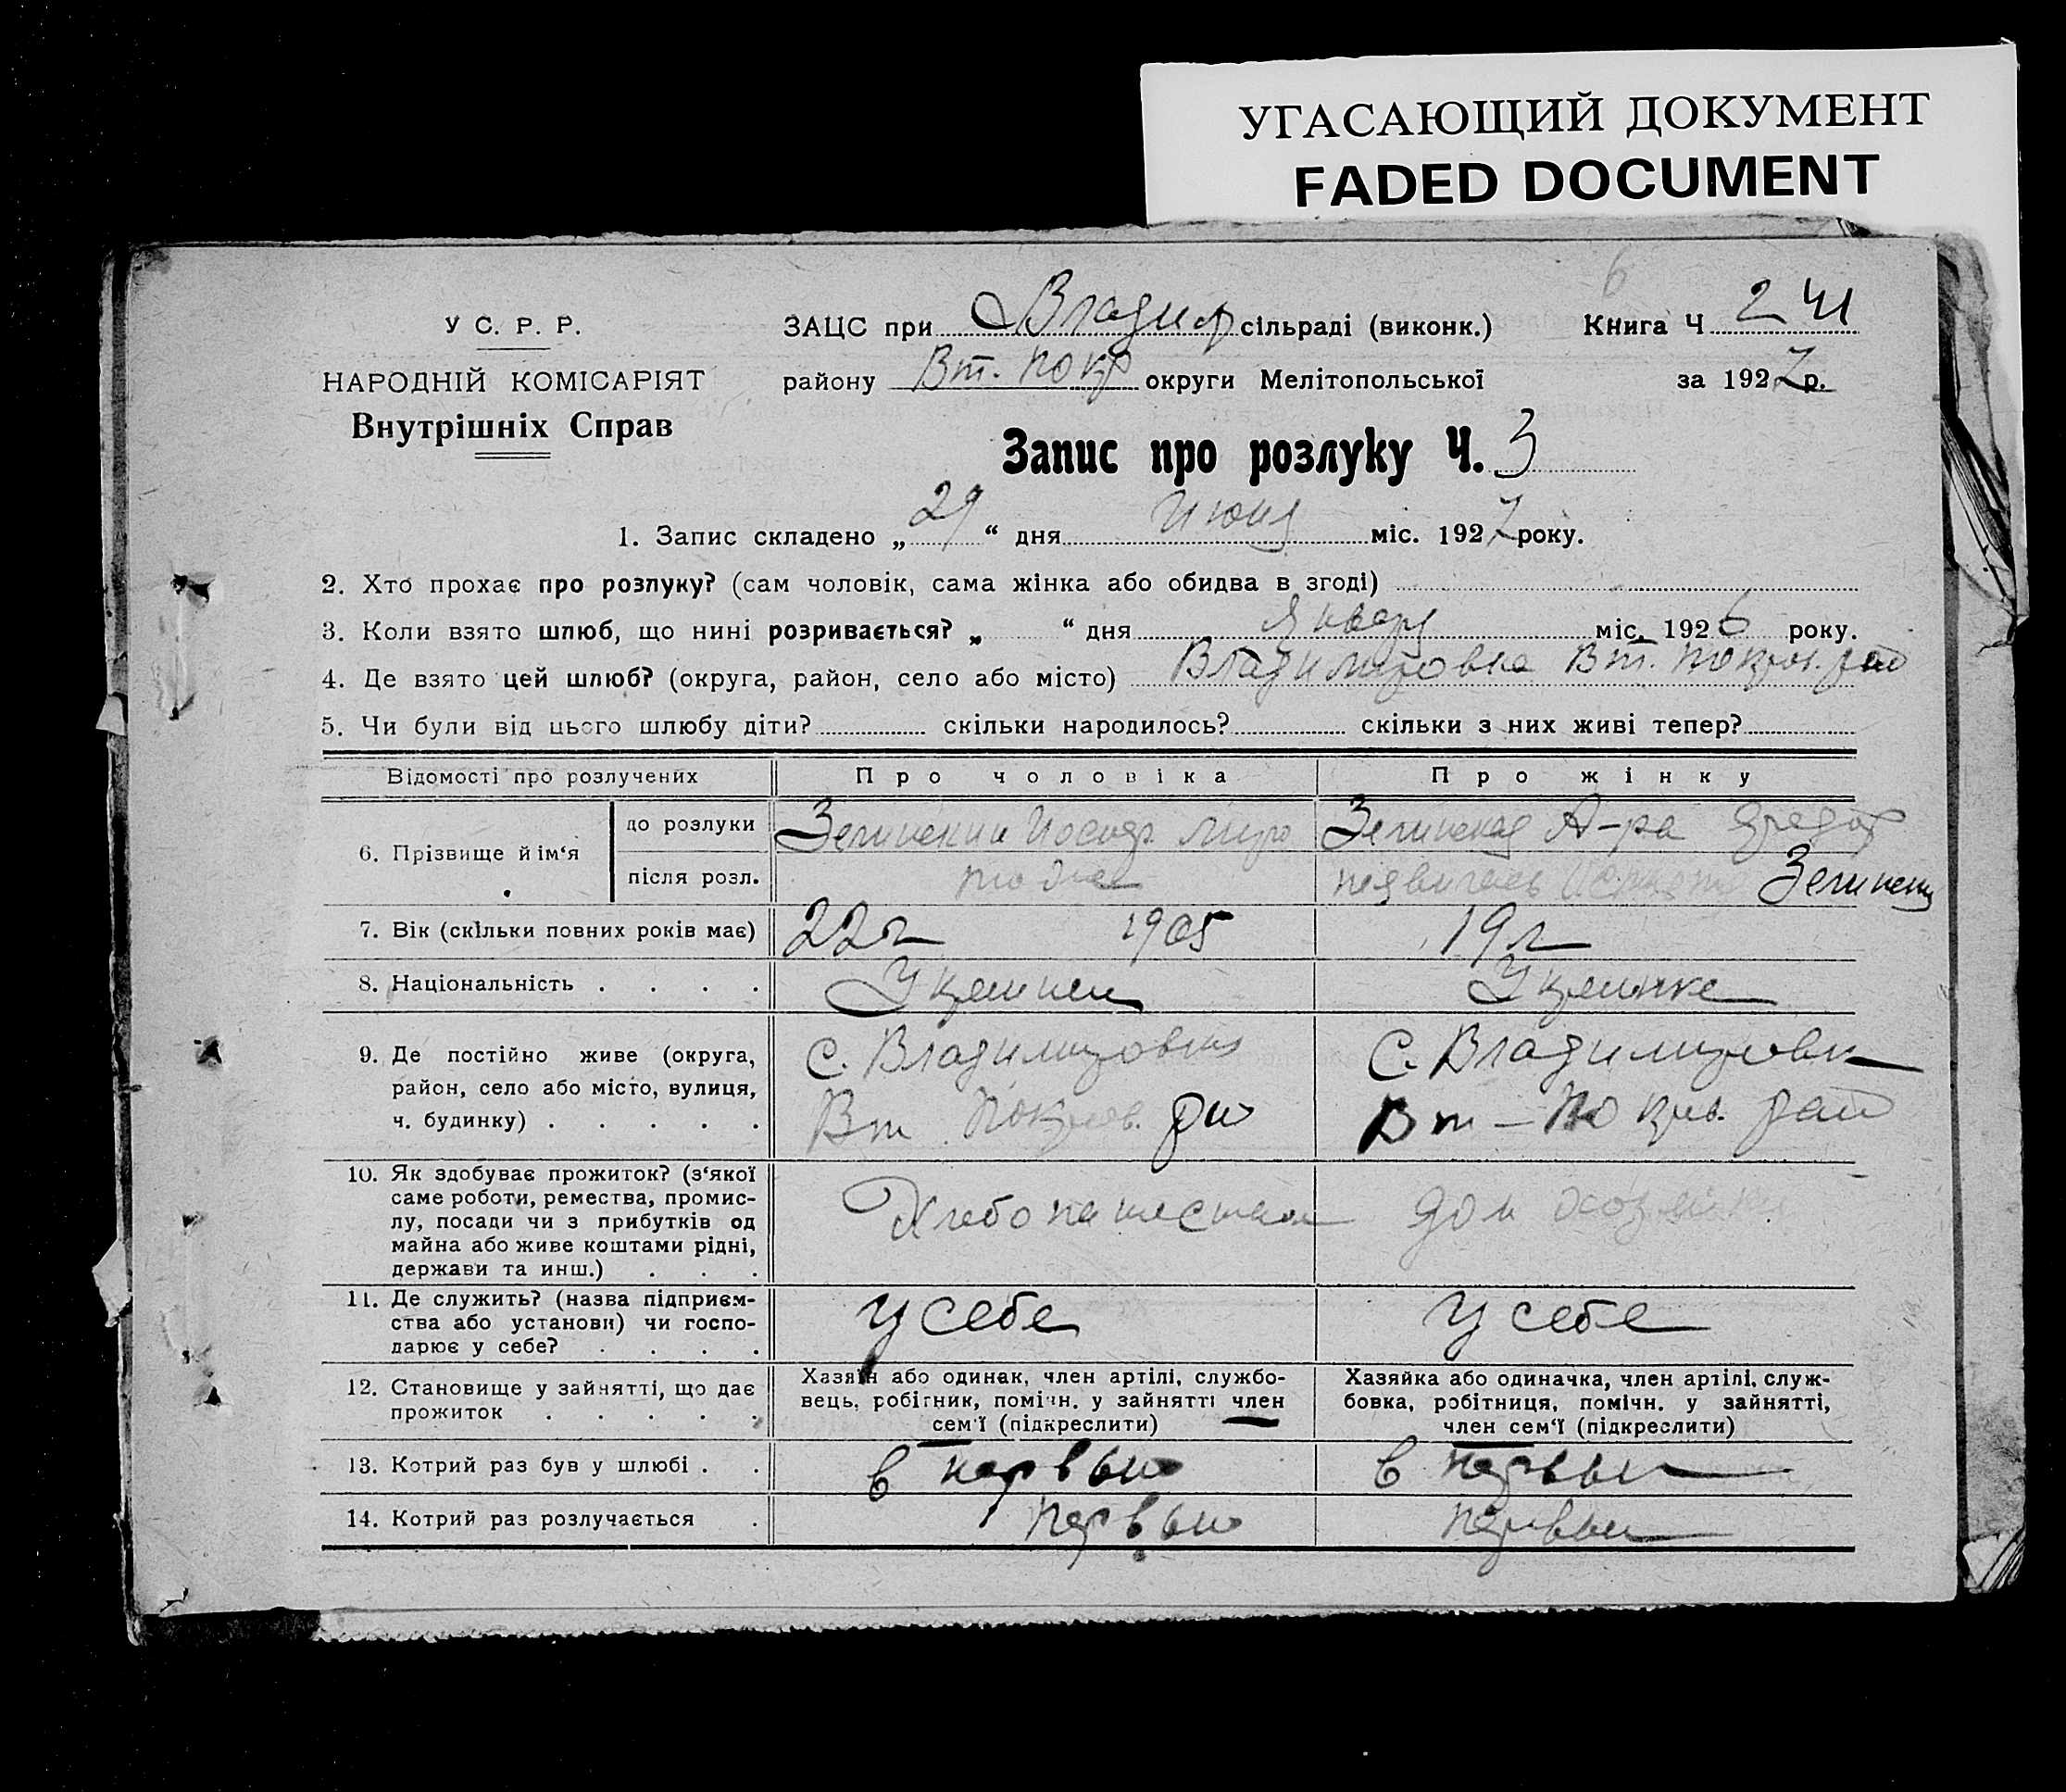 УГАСАЮЩИЙ ДОКУМЕНТ
FADED DOCUMENT
6
У С. Р. Р.
НАРОДНІЙ КОМІСАРІЯТ
Внутрішніх Справ
ЗАЦС при Владир сільраді (виконк.)
Книга Ч 2 41
району Вт. покр округи Мелітопольської
за 1927 р.
Запис про розлуку Ч. 3
1. Запис складено „ 29 “ дня Июня міс. 1927 року.
2. Хто прохає про розлуку? (сам чоловік, сама жінка або обидва в згоді)
3. Коли взято шлюб, що нині розривається? „ “ дня Января міс. 1926 року.
4. Де взято цей шлюб? (округа, район, село або місто) Владимировка Вт. Покров. рай
5. Чи були від цього шлюбу діти? скільки народилось? скільки з них живі тепер?
Відомості про розлучених
Про чоловіка
Про жінку
6. Прізвище й ім‘я
до розлуки
Иосиф
А-ра
після розл.
тоже
7. Вік (скільки повних років має)
22 г 1905
19 л
8. Національність . . . .
Украинец
Украинка
9. Де постійно живе (округа, район, село або місто, вулиця, ч. будинку) . . . . .
С. Владимировка
Вт. Покров. рай
С. Владимировка
Вт – Покров. рай
10. Як здобуває прожиток? (з‘якої саме роботи, ремества, промислу, посади чи з прибутків од майна або живе коштами рідні, держави та инш.) . . .
Хлебопашеством
дом хозяйка
11. Де служить? (назва підприємства або установи) чи господарює у себе? . . . .
у себе
у себе
12. Становище у зайнятті, що дає прожиток . . . . .
Хазяїн або одинак, член артілі, службовець, робітник, помічн. у зайнятті член сем‘ї (підкреслити)
Хазяйка або одиначка, член артілі, службовка, робітниця, помічн. у зайнятті, член сем‘ї (підкреслити)
13. Котрий раз був у шлюбі . .
в первый
в первый
14. Котрий раз розлучається .
первый
первый